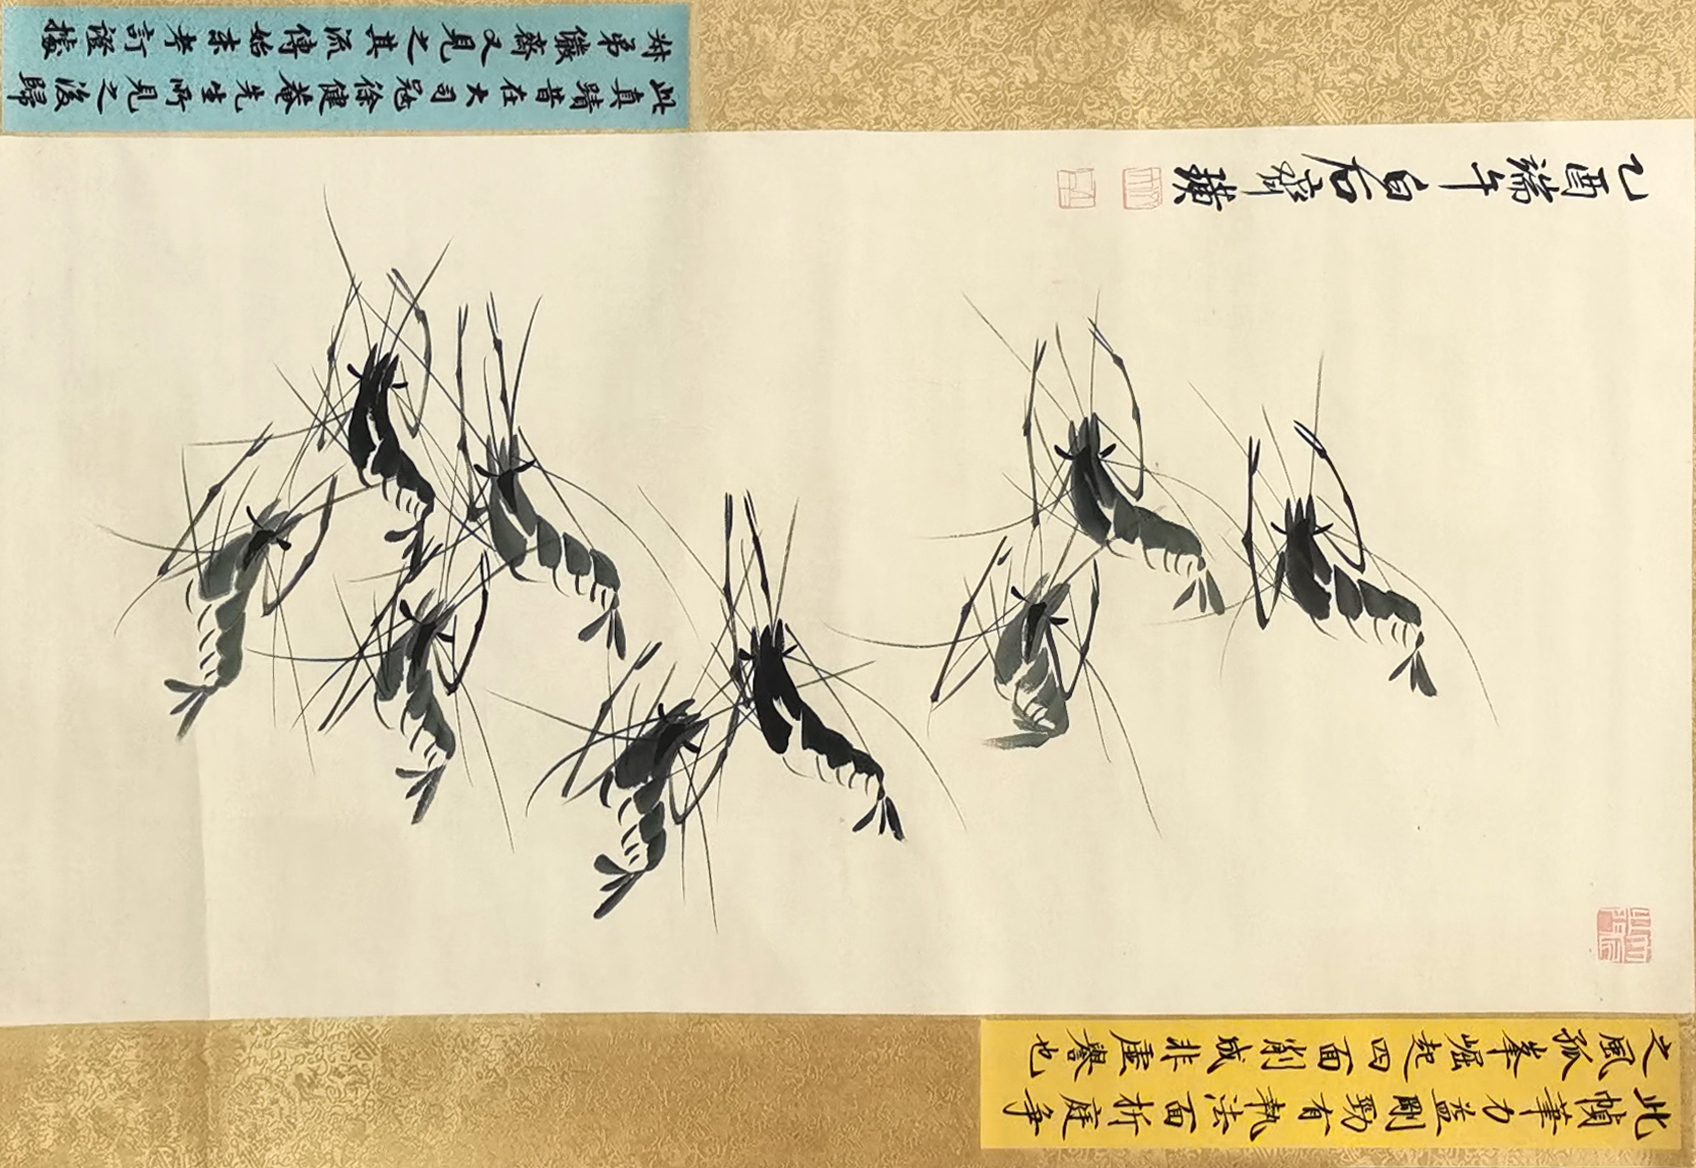 乙酉端午白石齊璜
此真蹟昔在大司寇徐健菴先生所見之後歸
叔弟儼齋又見之其流傳始末考訂證據
此幀筆力益剛勁有執法面折庭爭
之風孤峯崛起四面削成非虛譽也